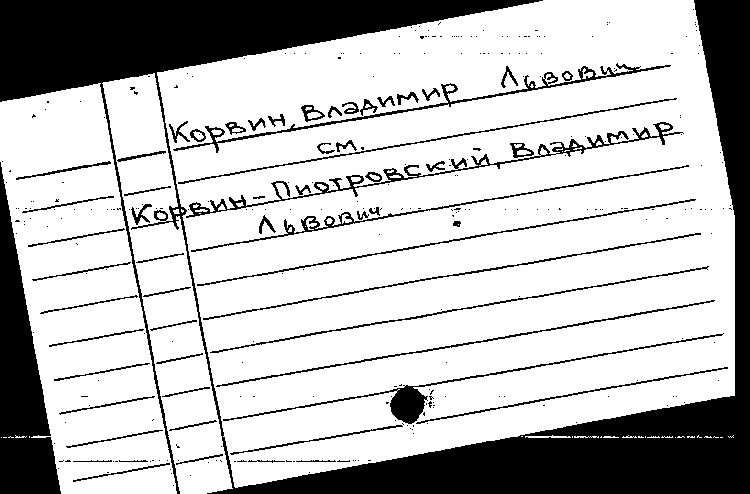 Корвин, Владимир Львович
см.
Корвин-Пиотровский, Владимир
Львович.